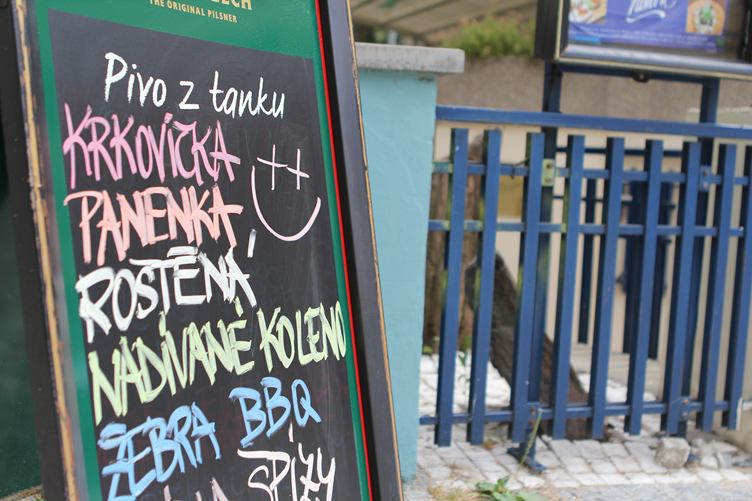 THE ORIGINAL PILSNER
Pivo z tanku
KRKOVIČKA
PANENKA
ROSTĒNÁ
NADÍVANÉ KOLENO
ŽEBRA BBQ